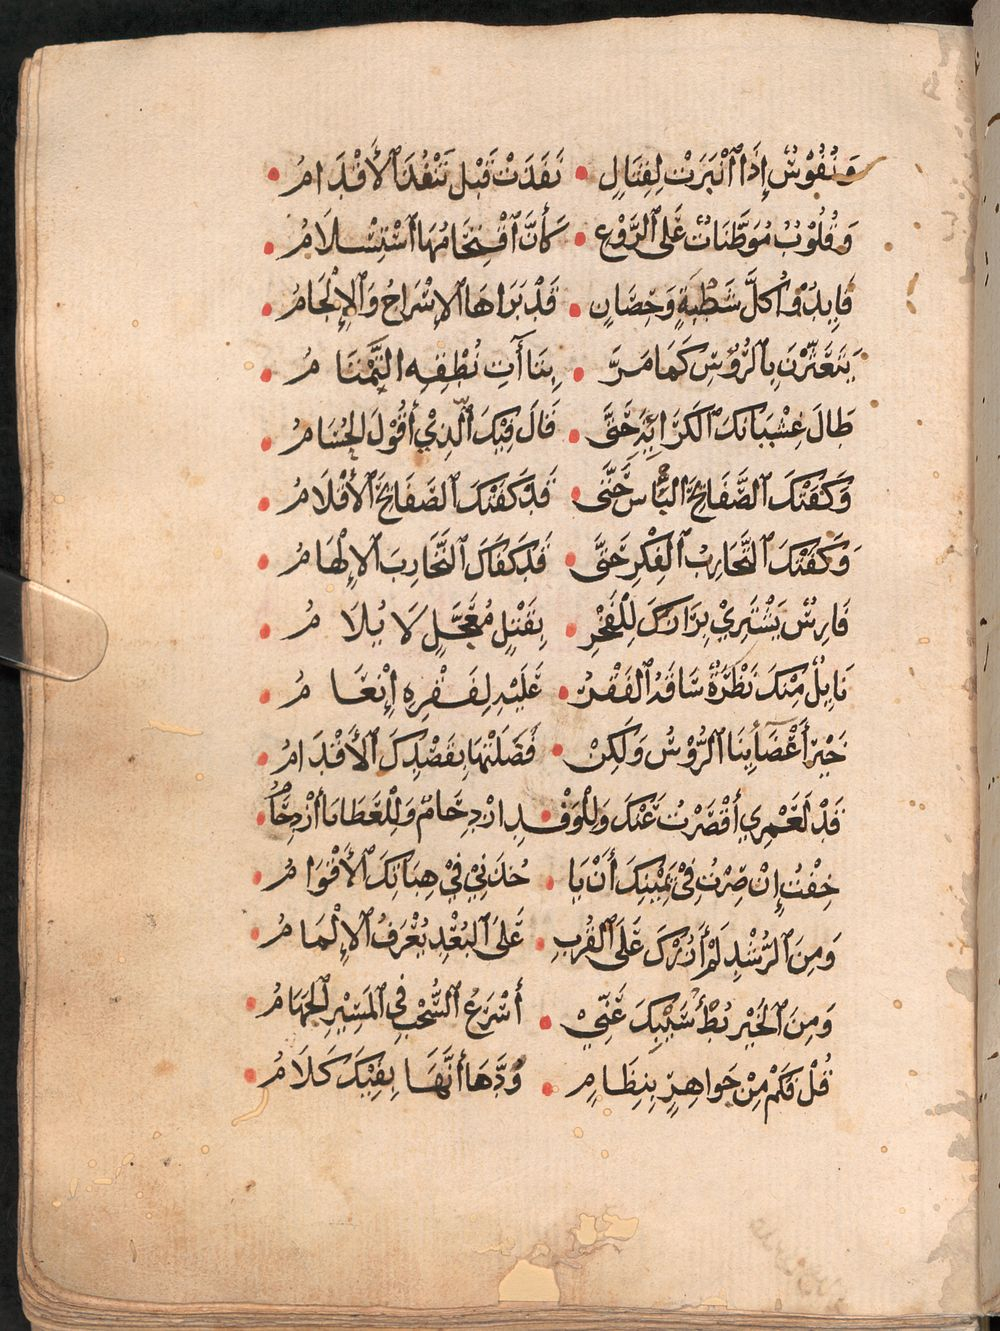 وَنُفُوسٌ إِذَا ٱنْبَرَتْ لِقِتَالٍ • نَفَدَتْ قَبْلَ تَنْفُدَ ٱلْأَقْدَامُ •
وَقُلُوبٌ مُوَطَّنَاتٌ عَلَى ٱلرَّوْعِ • كَأَنَّ ٱقْتِحَامُهَا ٱسْتِسْلَامُ •
قَايِدُوا كُلَّ شَطْبَةٍ وَحِصَانٍ • قَدْ بَرَاهَا ٱلْإِسْرَاجُ وَٱلْإِلْجَامُ •
يَتَعَثَّرْنَ بِٱلرُّؤُسِ كَمَا مَرَّ • بِتَاآتِ نُطْقِهِ التَّمْتَامُ •
طَالَ غِشْيَانُكَ ٱلْكَرَائِهَ حَتَّى • قَالَ فِيكَ ٱلَّذِيْ أَقُوْلُ الْحُسَامُ •
وَكَفَتْكَ ٱلصَّفَائِحُ النَّاسَ حَتَّى • قَدْ كَفَتْكَ ٱلصَّفَائِحَ ٱلْأَقْلَامُ •
وَكَفَتْكَ ٱلتَّجَارِبُ ٱلْفِكْرَ حَتَّى • قَدْ كَفَاكَ ٱلتَّجَارِبَ ٱلْإِلْهَامُ •
فَارِسٌ يَشْتَرِيْ بِرَازَكَ لِلْفَخْرِ • بِقَتْلٍ مُعَجَّلٍ لَا يُلَامُ •
نَايِلٌ مِنْكَ نَظْرَةً سَاقَهُ ٱلْفَقْرُ • عَلَيْهِ لِفَقْرِهِ إِنْعَامُ •
خَيْرُ أَعْضَاءِنَا ٱلرُّؤُسُ وَلَكِنْ • فَضَلَتْهَا بِقَصْدِكَ ٱلْأَقْدَامُ •
قَدْ لَعَمْرِي أَقْصَرْتُ عَنْكَ وَلِلْوَفْدِ ازْدِحَامٌ وَلِلْعَطَايَا ٱزْدِحَامُ •
خِفْتُ إِنْ صِرْتُ فِيْ يَمِيْنِكَ أَنْ يَا • خُذَنِيْ فِيْ هِبَاتِكَ ٱلْأَقْوَامُ •
وَمِنَ ٱلرُّشْدِ لَمْ أَزُرْكَ عَلَى ٱلْقُرْبِ • عَلَى ٱلْبُعْدِ يُعْرَفُ ٱلْإِلْمَامُ •
وَمِنَ ٱلْخَيْرِ بُطْءُ سَيْبِكَ عَنِّيْ • أَسْرَعُ ٱلسُّحْبِ فِي ٱلْمَسِيْرِ ٱلْجَهَامُ •
قُلْ فَكَمْ مِنْ جَوَاهِرٍ بِنِظَامٍ • وُدُّهَا أَنَّهَا بِفِيْكَ كَلَامُ •